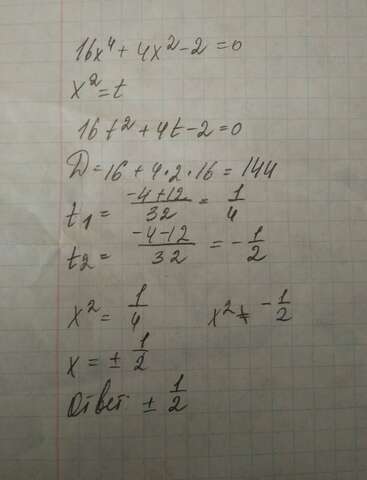 16x⁴ + 4x² - 2 = 0
x² = t
16t² + 4t - 2 = 0
D = 16 + 4·2·16 = 144
t₁ = (-4+12)/32 = 1/4
t₂ = (-4-12)/32 = -1/2
x² = 1/4 x² ≠ -1/2
x = ± 1/2
Ответ ± 1/2